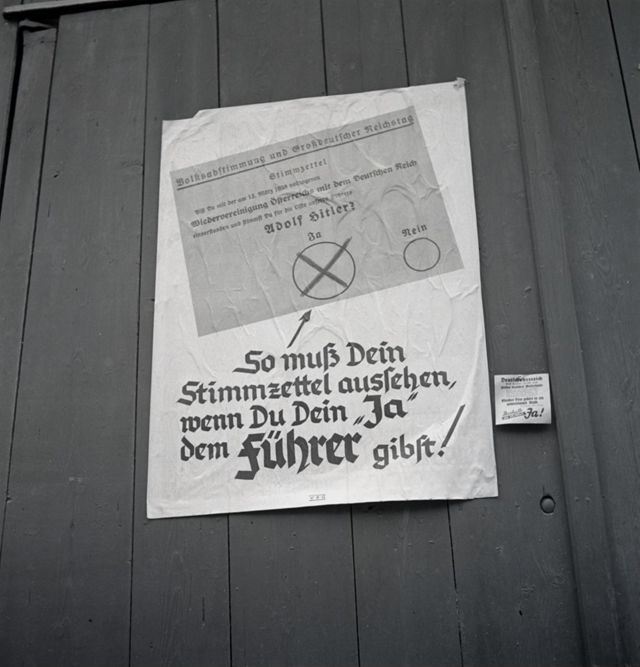 Volksabstimmung und Großdeutscher Reichstag
Stimmzettel
Bist Du mit der am 13. März 1938 vollzogenen
Wiedervereinigung Österreichs mit dem Deutschen Reich
einverstanden und stimmst Du für die Liste unseres Führers
Adolf Hitler?
Ja
Nein
So muß Dein
Stimmzettel aussehen,
wenn Du Dein „Ja“
dem Führer gibst!
Ja!